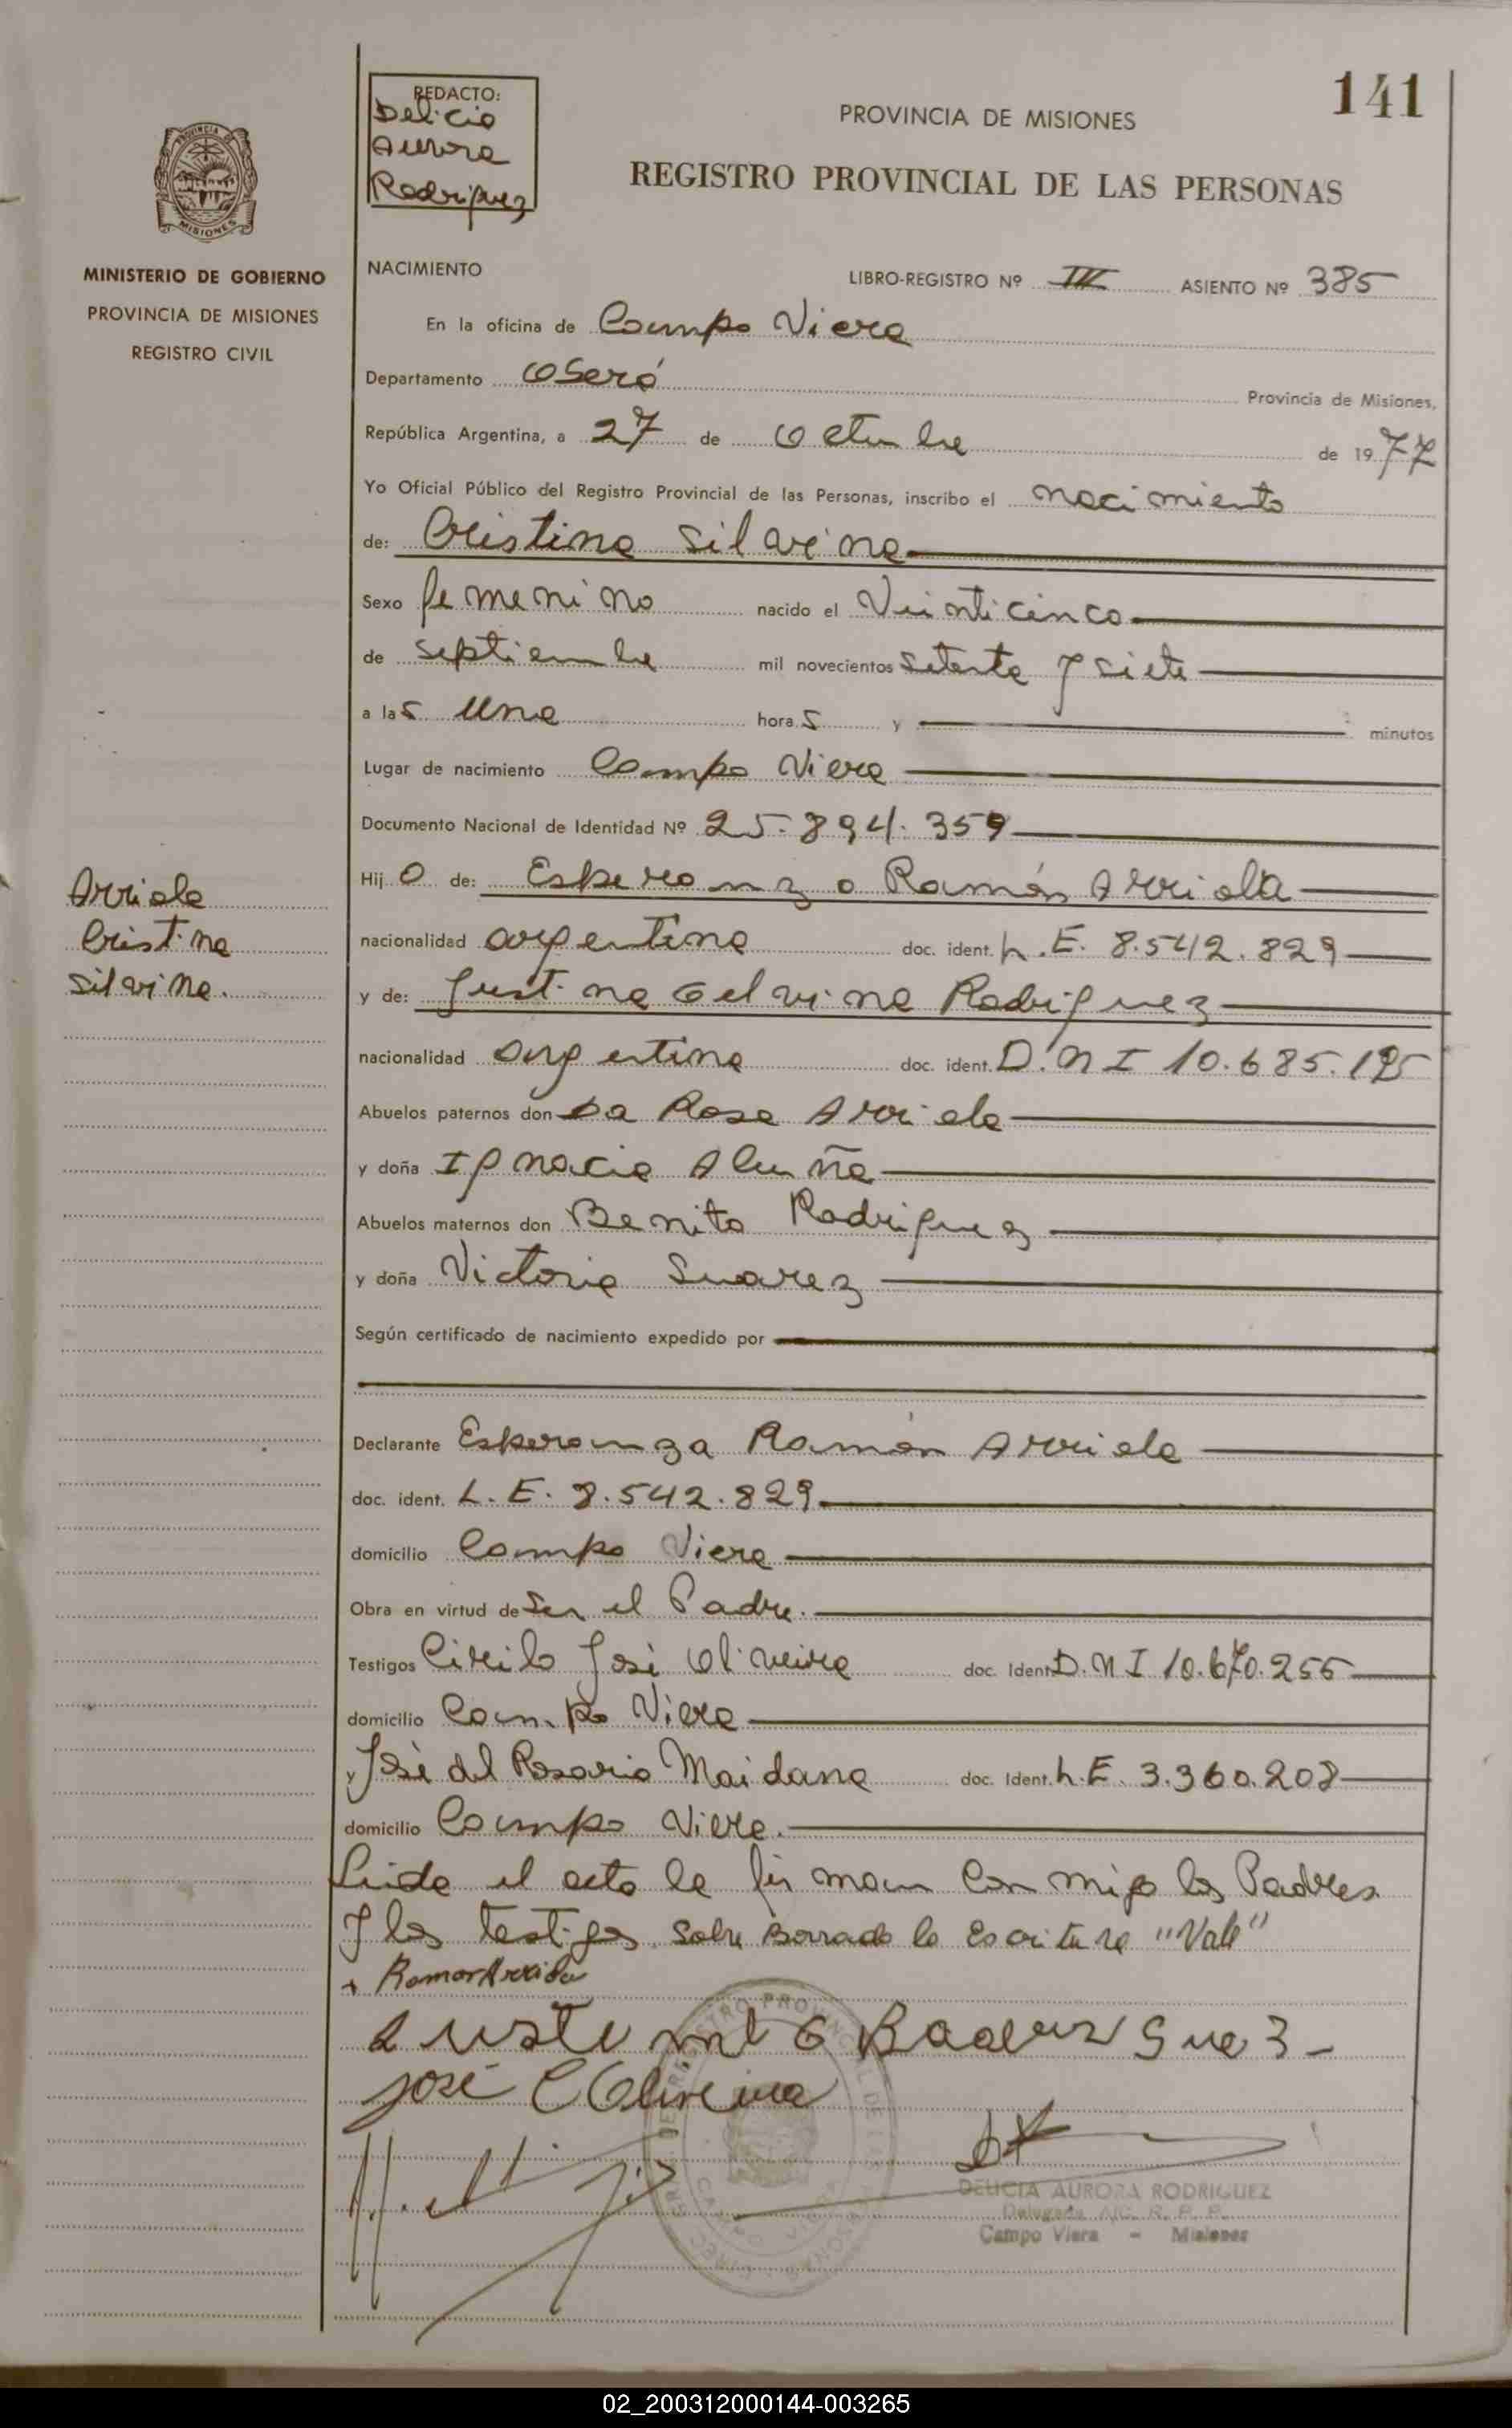 141
REDACTO:
Delicia
Aurora
Rodriguez
PROVINCIA DE MISIONES
REGISTRO PROVINCIAL DE LAS PERSONAS
MISIONES
MINISTERIO DE GOBIERNO
PROVINCIA DE MISIONES
REGISTRO CIVIL
NACIMIENTO LIBRO-REGISTRO Nº III ASIENTO Nº 385
En la oficina de Campo Viera
Departamento Oberá Provincia de Misiones,
República Argentina, a 27 de Octubre de 1977
Yo Oficial Público del Registro Provincial de las Personas, inscribo el nacimiento
de: Cristina Silvina
Sexo femenino nacido el Veinticinco
de septiembre mil novecientos setenta y siete
a las una horas y minutos
Lugar de nacimiento Campo Viera
Documento Nacional de Identidad Nº 25.894.359
Arriola
Cristina
Silvina.
Hijo de: Esperanza Ramón Arriola
nacionalidad argentina doc. ident. L.E. 8.542.829
y de: Justina Rodriguez
nacionalidad argentina doc. ident. D.N I 10.685.195
Abuelos paternos don La Rosa Arriola
y doña Ignacia
Abuelos maternos don Benito Rodriguez
y doña Victoria Suarez
Según certificado de nacimiento expedido por
Declarante Esperanza Ramón Arriola
doc. ident. L.E. 8.542.829
domicilio Campo Viera
Obra en virtud de Ser el Padre.
Testigos Cirilo José Oliveira doc. Ident. D.N I 10.670.255
domicilio Campo Viera
y José del Rosario Maidana doc. Ident. L.E. 3.360.208
domicilio Campo Viera.
Leida el acta la firman conmigo los Padres
y los testigos. Sobre Borrado la Escritura "Vale"
Ramon Arriola
José C Oliveira
DELICIA AURORA RODRIGUEZ
Delegada A/C. R. P. P.
Campo Viera - Misiones
02_200312000144-003265